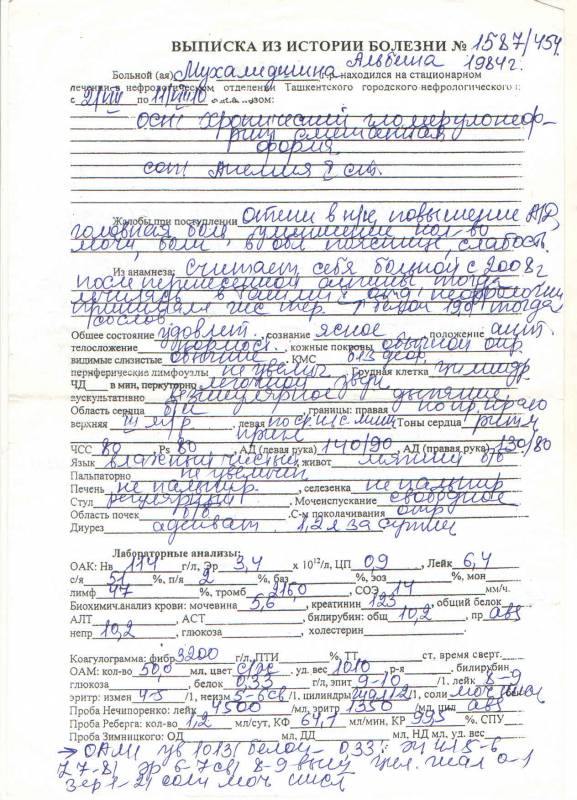 ВЫПИСКА ИЗ ИСТОРИИ БОЛЕЗНИ № 1587/454
Больной (ая) Мухамединина Альбина 1984 г. находился на стационарном
лечении в нефрологическом отделении Ташкентского городского нефрологического
с 2/VIII по 11/VIII 10
осн: хронический гломерулонеф-
рит смешанная
форма
соп: Анемия I ст.
Жалобы при поступлении Отеки в повышение АД,
головная боль, уменьшение кол-во
мочи, боли в обл поясницы, слабость.
Из анамнеза: Считает себя больной с 2008 г
после перенесенной ангины тогда
лечилась в нефрологии
Общее состояние удовлет. , сознание ясное , положение акт.
телосложение нормост. , кожные покровы обычной окр
видимые слизистые обычные . КМС без деф.
периферические лимфоузлы не увелич . Грудная клетка цилиндр.
ЧД в мин, перкуторно легочной звук
аускультативно везикулярное дыхание
Область сердца б/и , границы: правая по пр. краю
верхняя III м/р , левая Тоны сердца ритм
прин
ЧСС 80 , Ps 80 , АД (левая рука) 140/90 , АД (правая рука) 130/80
Язык влажный чистый , живот мягкий б/б
Пальпаторно не увеличен
Печень не пальпир. , селезенка не пальпир
Стул регулярный , Мочеиспускание свободное
Область почек б/о . С-м поколачивания отр
Диурез адекват. 1,2 л за сутки
Лабораторные анализы:
ОАК: Нв 114 г/л, Эр 3,4 х 10¹²/л, ЦП 0,9 , Лейк 6,4
с/я 51 %, п/я 2 %, баз %, эоз %, мон
лимф 47 %, тромб 2160 , СОЭ 14 мм/ч.
Биохим.анализ крови: мочевина 5,6 , креатинин 123 , общий белок
АЛТ , АСТ , билирубин: общ 10,2 , пр авз
непр 10,2 , глюкоза , холестерин .
Коагулограмма: фибр 3200 г/л, ПТИ %, ТТ ст, время сверт.
ОАМ: кол-во 500 мл, цвет с/ж , уд. вес 1010 р-я , билирубин
глюкоза , белок 0,33 г/л, эпит 9-10 /1. лейк 8-9
эритр: измен 4-5 /1, неизм 5-6 св /1, цилиндры гиал 2 /1, соли моч кисл
Проба Нечипоренко: лейк 4500 /мл, эритр 1350 /мл, цил авз
Проба Реберга: кол-во 1,2 мл/сут, КФ 64,7 мл/мин, КР 99,5 %, СПУ
Проба Зимницкого: ОД мл, ДД мл, НД мл, уд. вес
→ ОАМ ув 1013 белок - 0,33 5-6
7-8 эр 6-7 св 8-9 выщ гиал 0-1
зер 1-2 соли моч кисл